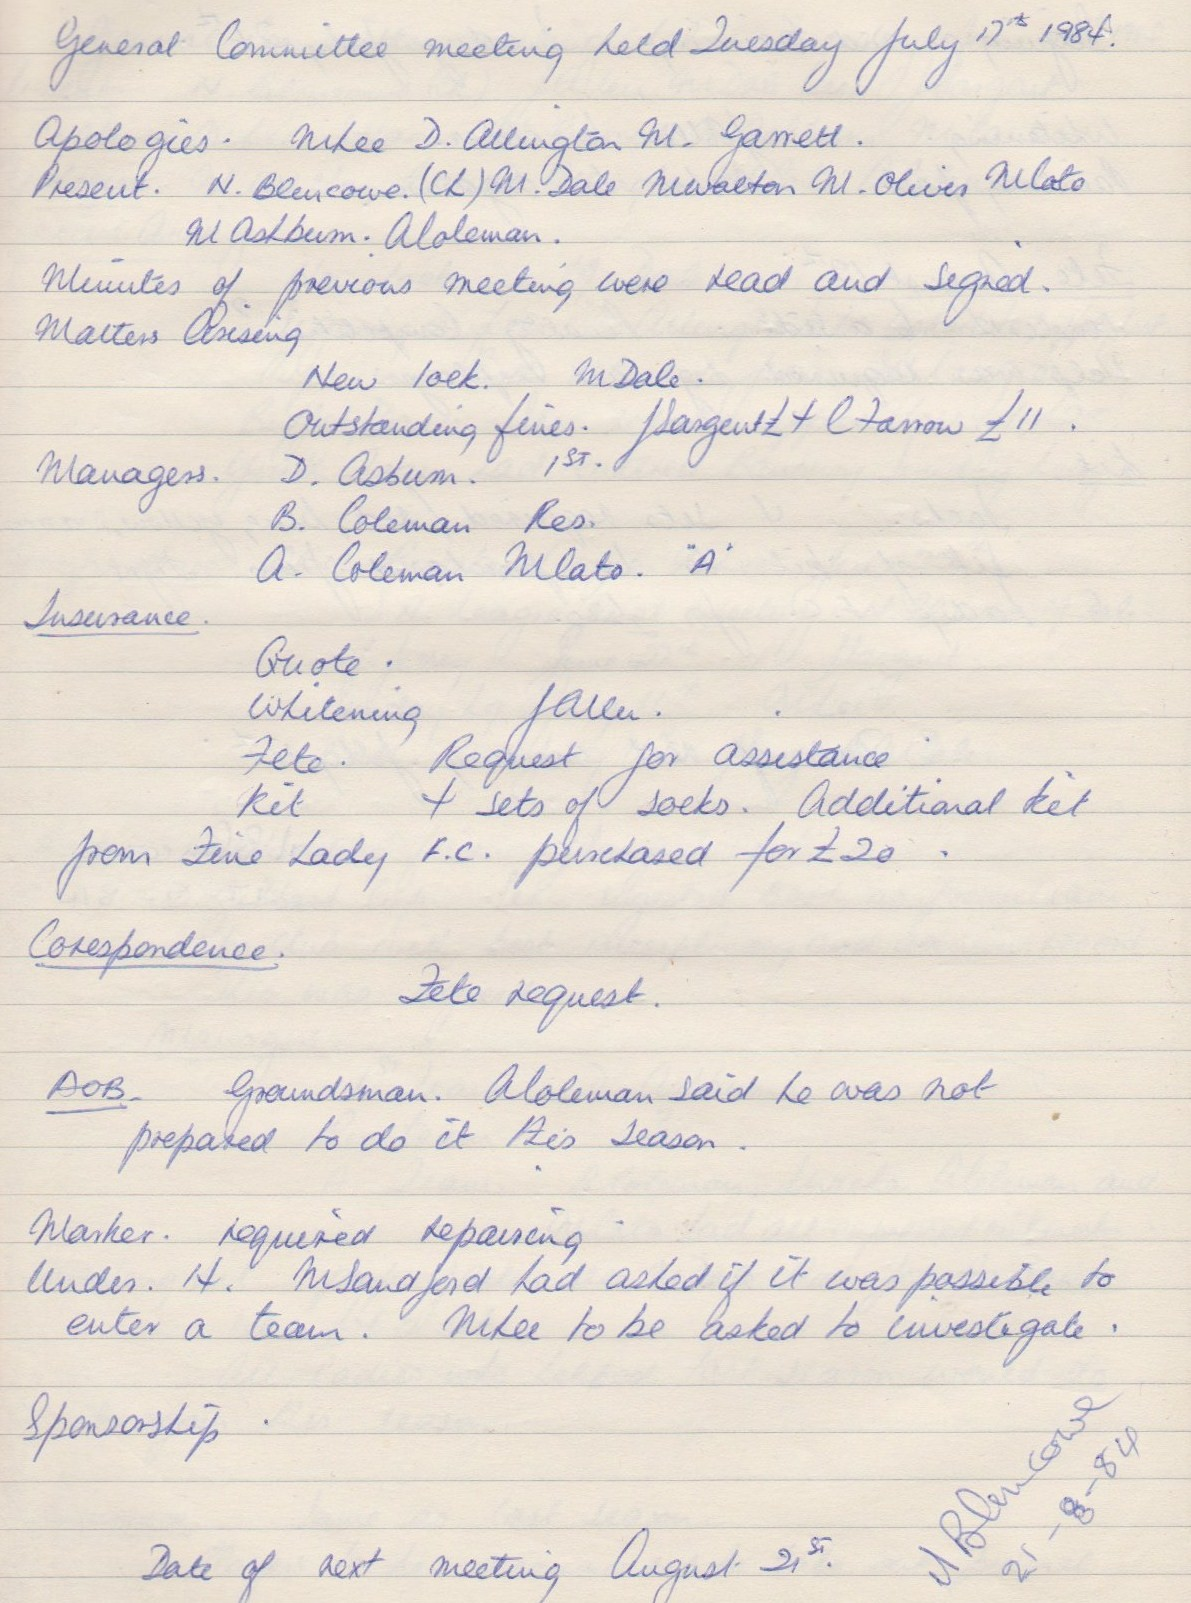 General Committee meeting held Tuesday July 17th 1984.
Apologies. M Lee D. Allington M. Garrett.
Present. N. Blencowe. (Ch) M. Dale M Walton M. Oliver M Cato
M Ashburn. A Coleman.
Minutes of previous meeting were read and signed.
Matters Arising
New lock. M Dale.
Outstanding fines. J Sargent £4 C Farrow £11.
Managers. D. Asburn. 1ST.
B. Coleman Res.
A. Coleman M Cato. "A"
Insurance.
Quote.
Whitening J Allen.
Fete. Request for assistance
Kit 4 sets of socks. Additional kit
from Fine Lady F.C. purchased for £20.
Corespondence.
Fete request.
AOB. Groundsman. A Coleman said he was not
prepared to do it this season.
Marker. required repairing
Under. 14. M Sandford had asked if it was possible to
enter a team. M Lee to be asked to investigate.
Sponsorship.
N Blencowe
21-8-84
Date of next meeting August 21ST.